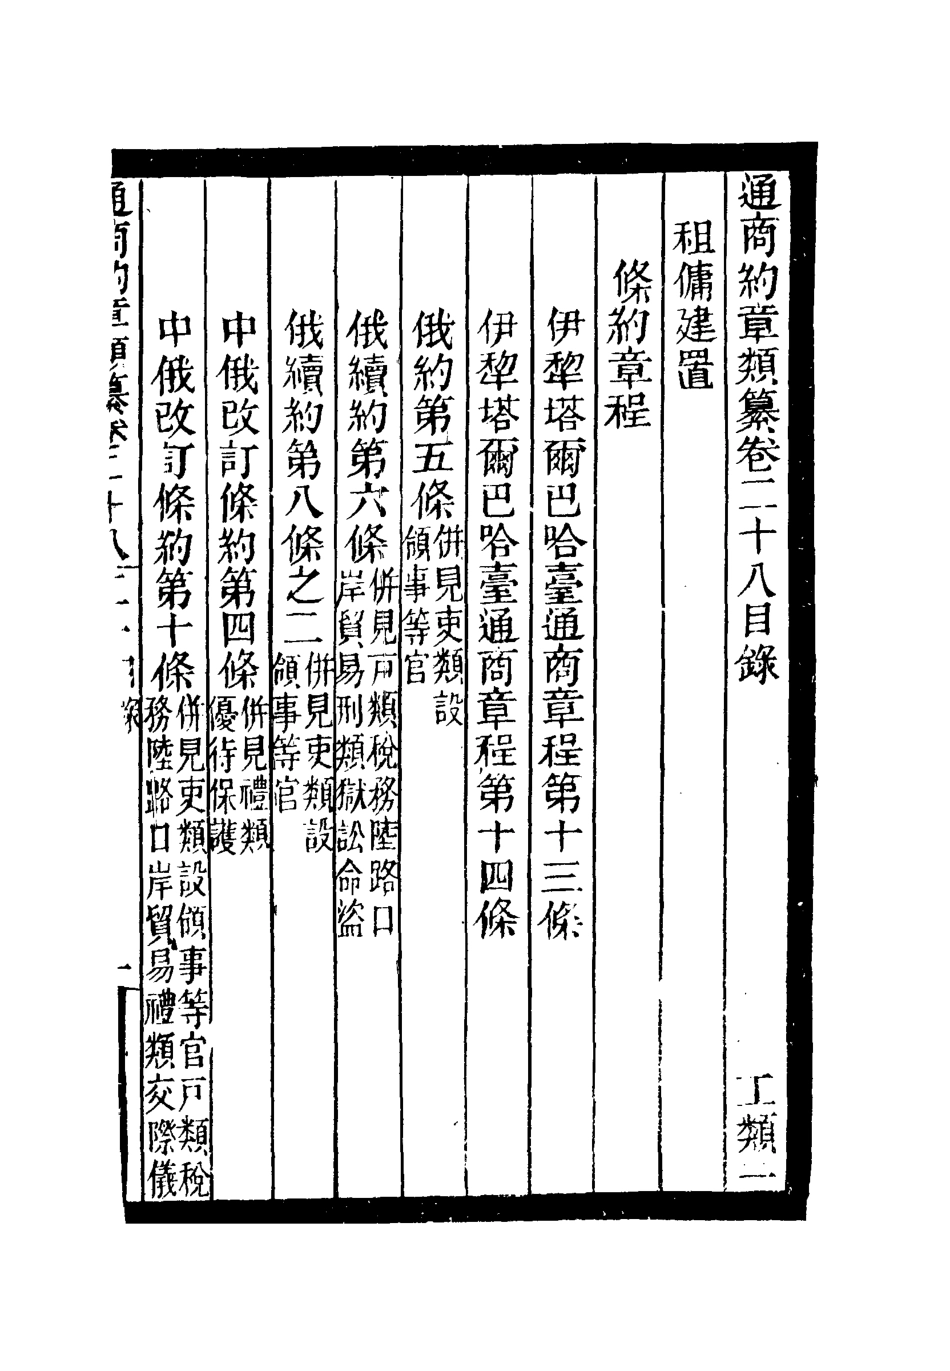 通商約章類纂卷二十八目錄 工類一
租傭建置
條約章程
伊犂塔爾巴哈臺通商章程第十三條
伊犂塔爾巴哈臺通商章程第十四條
俄約第五條併見吏類設領事等官
俄續約第六條併見戸類稅務陸路口岸貿易刑類獄訟命盜
俄續約第八條之二併見吏類設領事等官
中俄改訂條約第四條併見禮類優待保護
中俄改訂條約第十條併見吏類設領事等官戸類稅務陸路口岸貿易禮類交際儀
通商約章類纂卷二十八